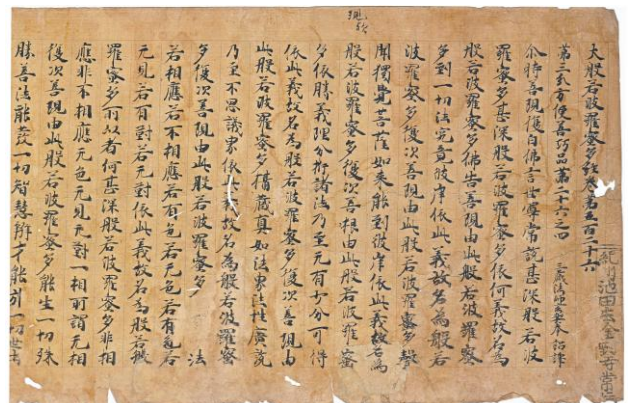 大般若波羅蜜多經卷第五百二十六
第三分方便善巧品第二十六之四 三藏法師玄奘奉 詔譯
尒時善現復白佛言世尊常說甚深般若波
羅蜜多甚深般若波羅蜜多依何義故名為
般若波羅蜜多佛告善現由此般若波羅蜜
多到一切法究竟彼岸依此義故名為般若
波羅蜜多復次善現由此般若波羅蜜多聲
聞獨覺菩薩如來能到彼岸依此義故名為
現
般若波羅蜜多復次善根由此般若波羅蜜
多依勝義理分析諸法乃至无有少分可得
依此義故名為般若波羅蜜多復次善現由
此般若波羅蜜多攝藏真如法界法性廣說
乃至不思議界依此義故名為般若波羅蜜
多復次善現由此般若波羅蜜多 法
若相應若不相應若有色若无色若有見若
无見若有對若无對依此義故名為般若波
羅蜜多所以者何甚深般若波羅蜜多非相
應非不相應无色无見无對一相所謂无相
復次善現由此般若波羅蜜多能生一切殊
勝善法能發一切智慧辯才能引一切世出